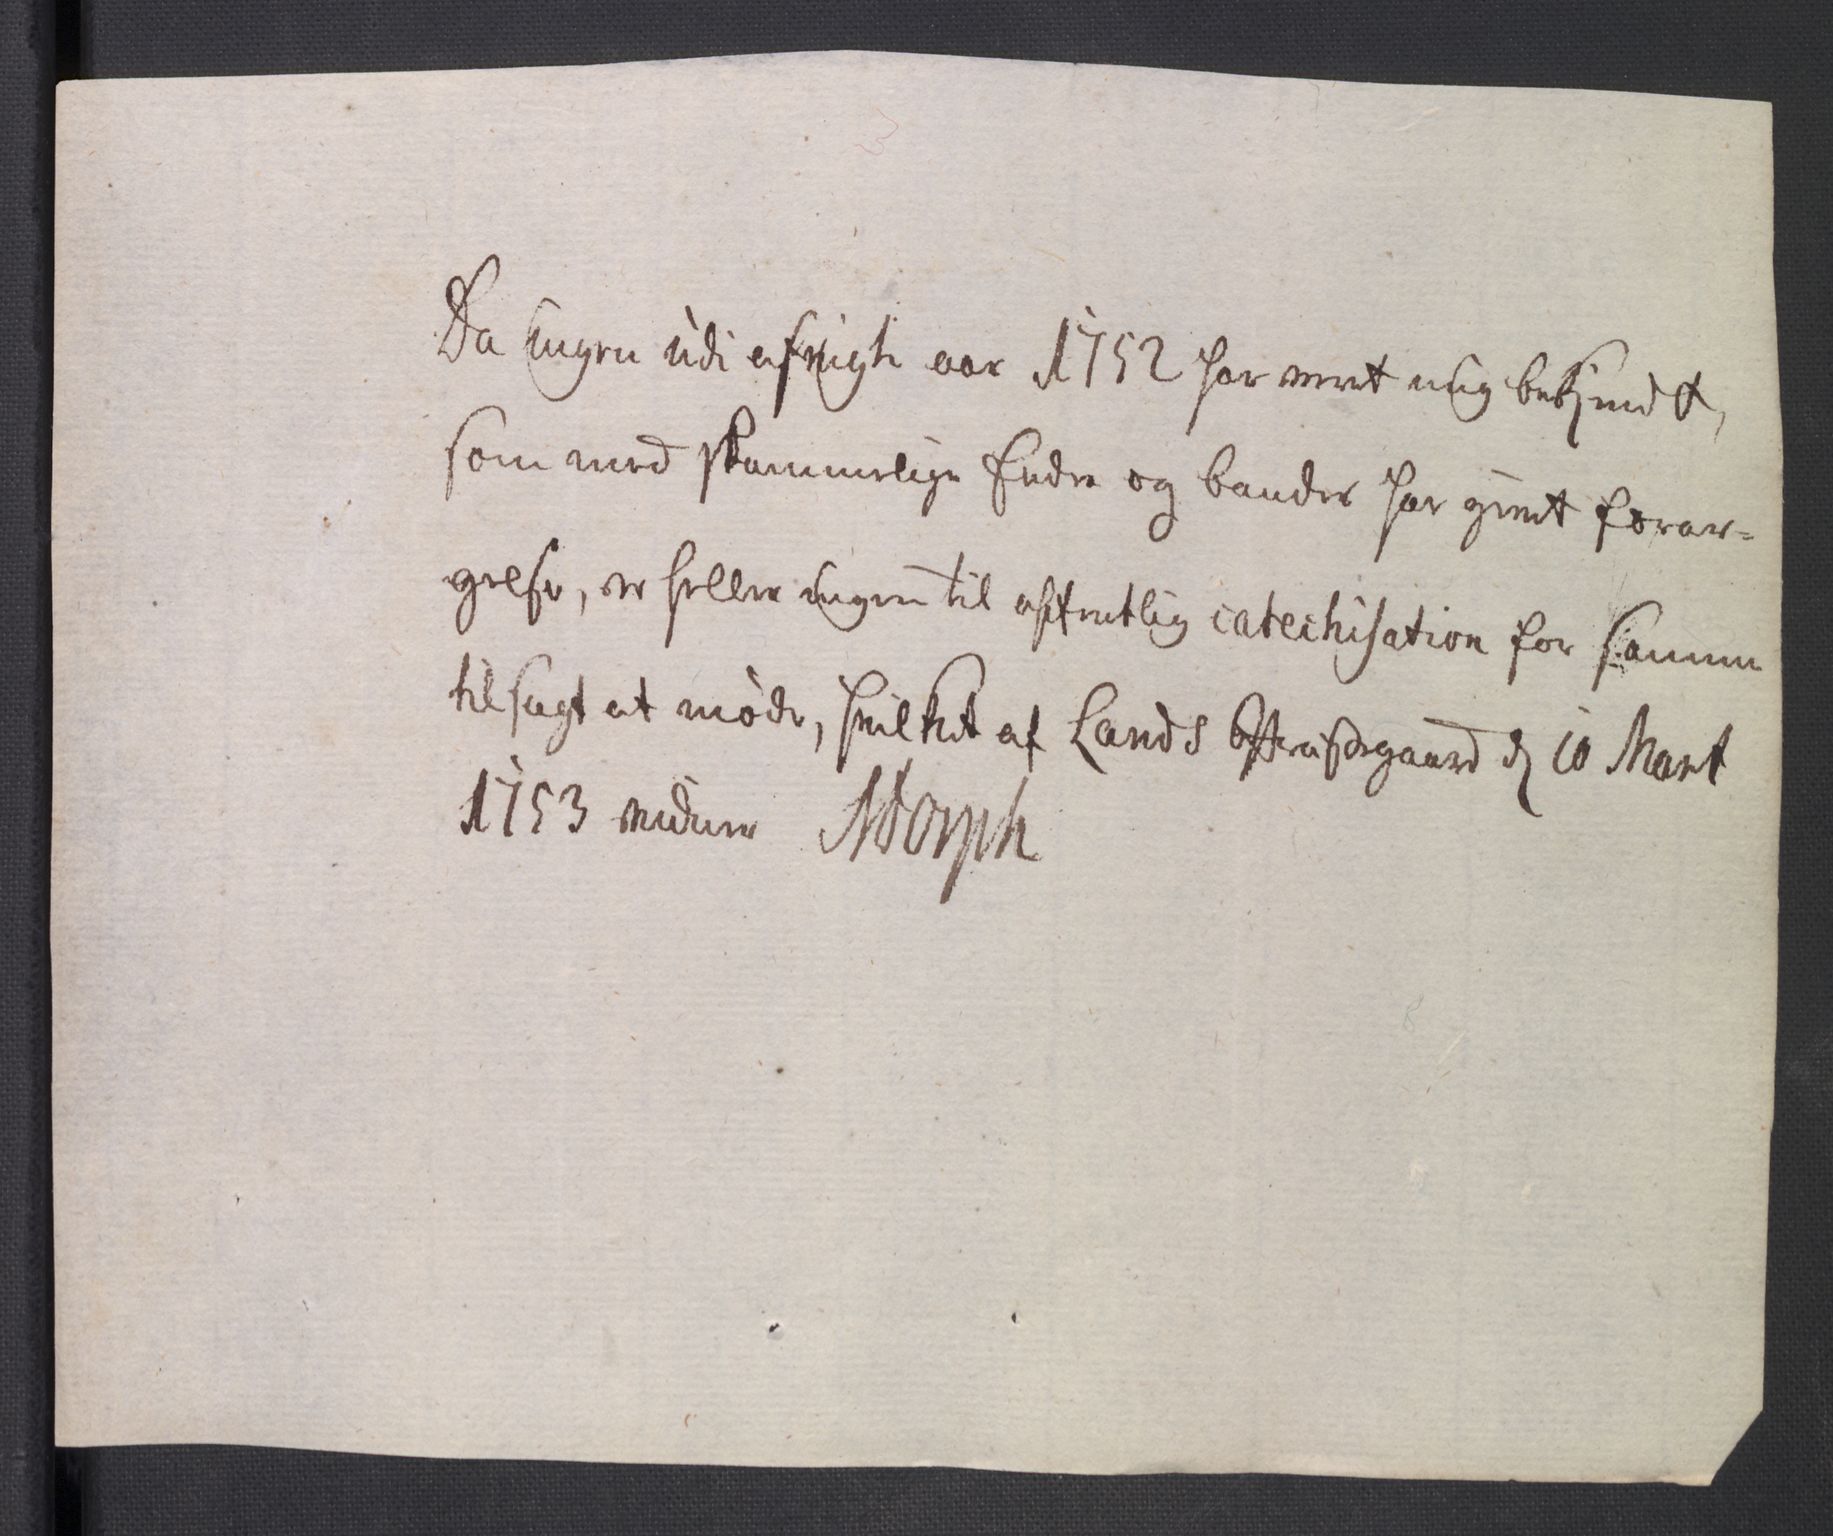 Da ingen udi afvigte aar 1752 har veret mig bekjendt,
som med skammelige Eeder og bander har givet forar-
gelse, er heller ingen til offentlig catechisation for samme
tilsagt at møde, hvilket af Lands præstegaard d 10 Mart
1753 vidner NDorph